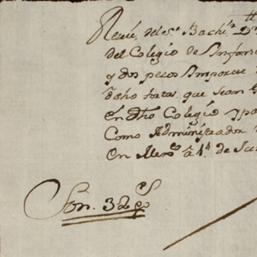 Recivi del Sr. Bachr. Dn
del Colegio de Infan
y dos pesos Importe
dho tatas que sean
en dho Colegio y pa
Como Administrador
En Mexco. â 4 de
Son 32 ps